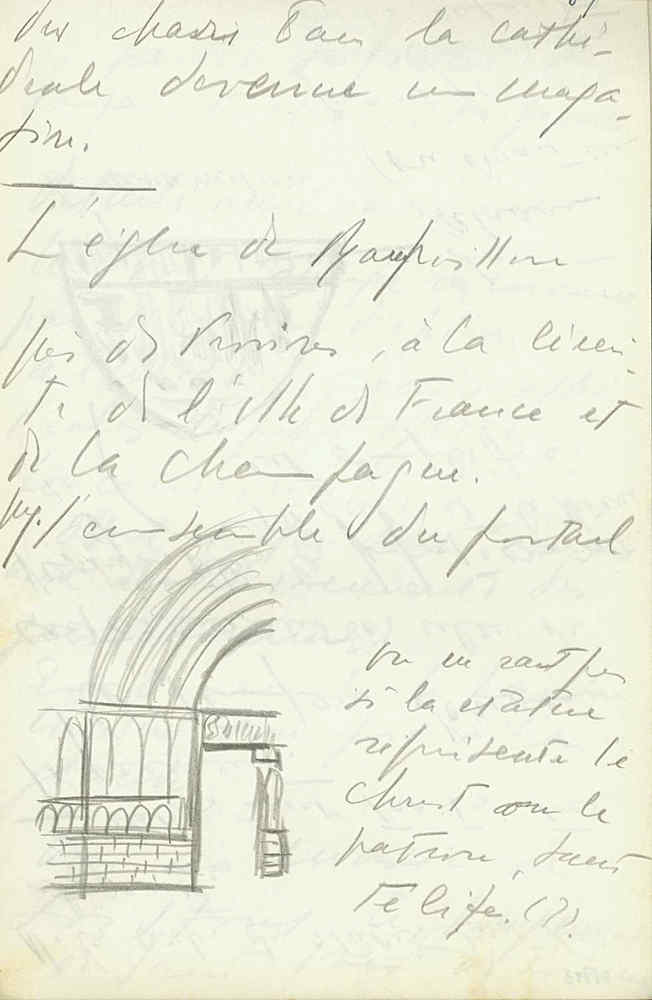 dans la cathé-
drale devenue un maga-
sin.
L'église de
près de Provins, à la limi-
te de l'Ile de France et
de la Champagne.
l'ensemble du portail
on ne sait pas
si la statue
représente le
Christ ou le
patron, saint
Félife. (?).